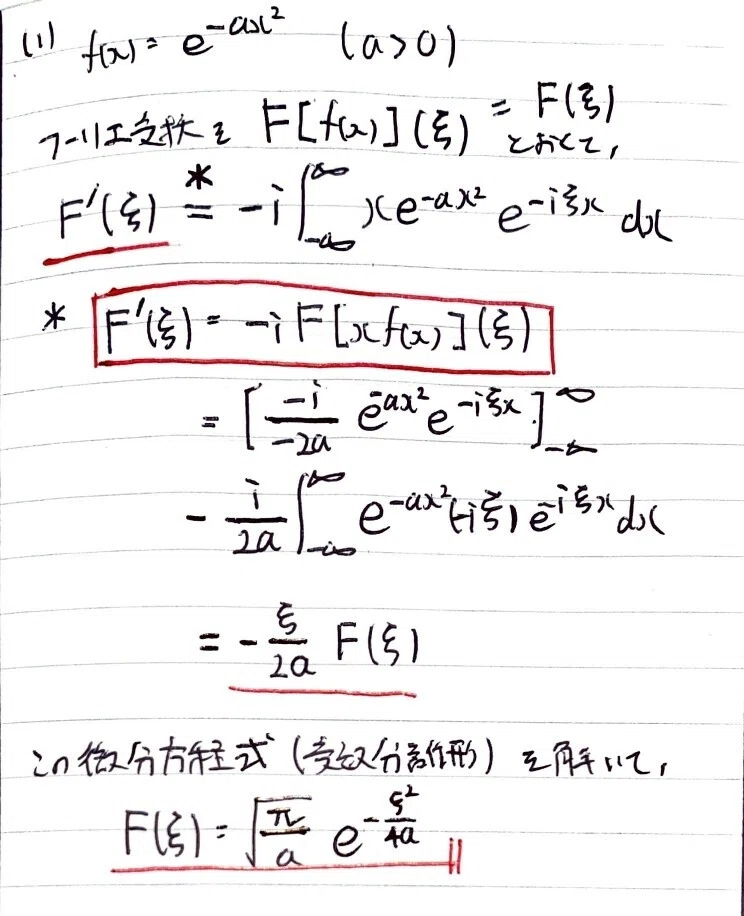 (1) f(x) = e^{-ax²} (a>0)
フーリエ変換を F[f(x)](ξ) = F(ξ) とおくと,
F'(ξ) \overset{*}{=} -i ∫_{-∞}^{∞} xe^{-ax²} e^{-iξx} dx
* F'(ξ) = -i F[xf(x)](ξ)
= [ \frac{-i}{-2a} e^{-ax²} e^{-iξx} ]_{-∞}^{∞}
- \frac{i}{2a} ∫_{-∞}^{∞} e^{-ax²} (-iξ) e^{-iξx} dx
= -\frac{ξ}{2a} F(ξ)
この微分方程式 (変数分離形) を解いて,
F(ξ) = \sqrt{\frac{π}{a}} e^{-\frac{ξ²}{4a}}